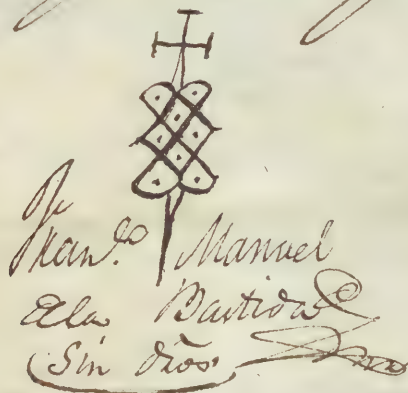 Fran.co Manuel
de la Bastida
Sin dros